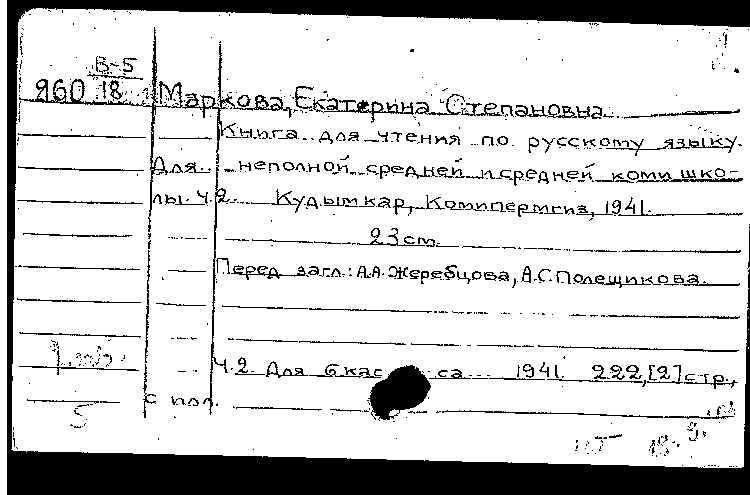 В-5
960 18 Маркова, Екатерина Степановна
Книга для чтения по русскому языку.
Для неполной средней и средней коми шко-
лы. Ч.2. Кудымкар, Комипермгиз, 1941.
23 cm.
Перед загл.: А.А. Жеребцова, А.С. Полещикова.
Ч.2. Для 6 кас са 1941. 222, [2] стр.,
с пол.
5